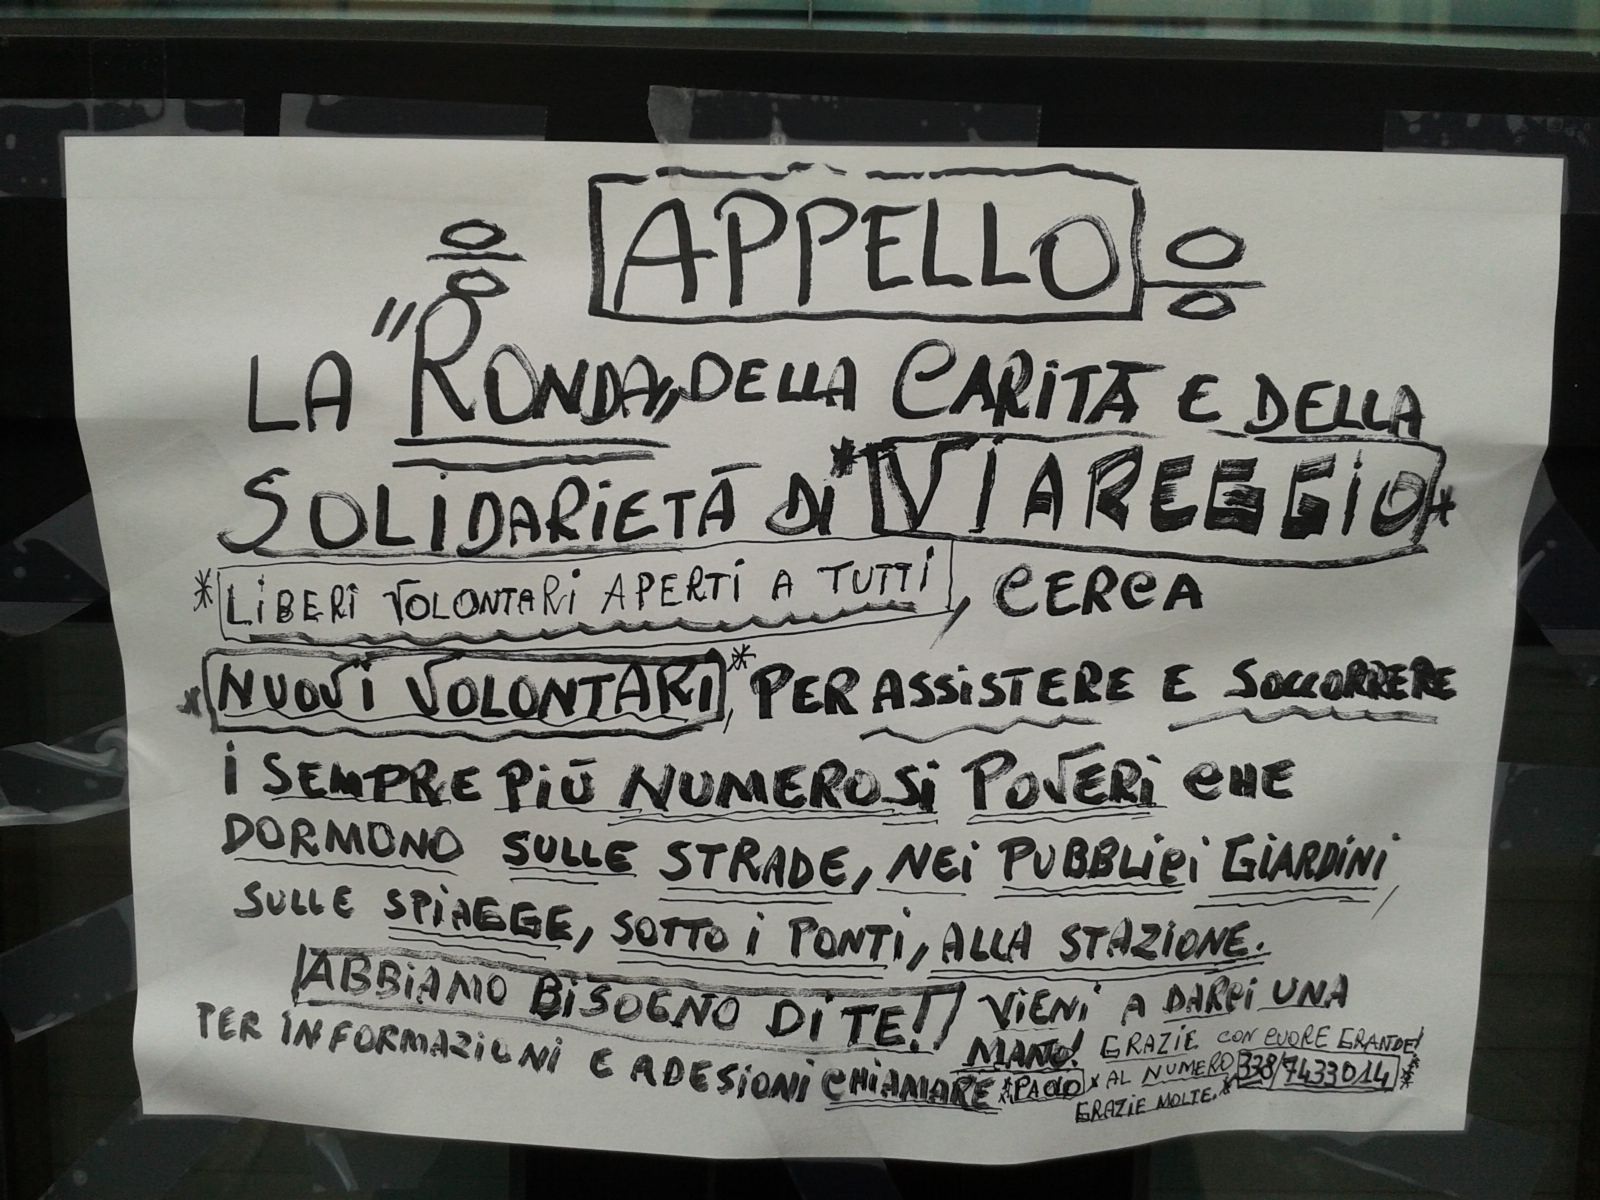 APPELLO
LA "RONDA" DELLA CARITÀ E DELLA
SOLIDARIETÀ DI *VIAREGGIO*
*LIBERI VOLONTARI APERTI A TUTTI, CERCA
*NUOVI VOLONTARI*, PER ASSISTERE E SOCCORRERE
I SEMPRE PIÙ NUMEROSI POVERI CHE
DORMONO SULLE STRADE, NEI PUBBLICI GIARDINI,
SULLE SPIAGGE, SOTTO I PONTI, ALLA STAZIONE.
ABBIAMO BISOGNO DI TE!! VIENI A DARCI UNA
MANO! GRAZIE CON CUORE GRANDE!
PER INFORMAZIONI E ADESIONI CHIAMARE *PAOLO* AL NUMERO 338/7433014*
GRAZIE MOLTE.*